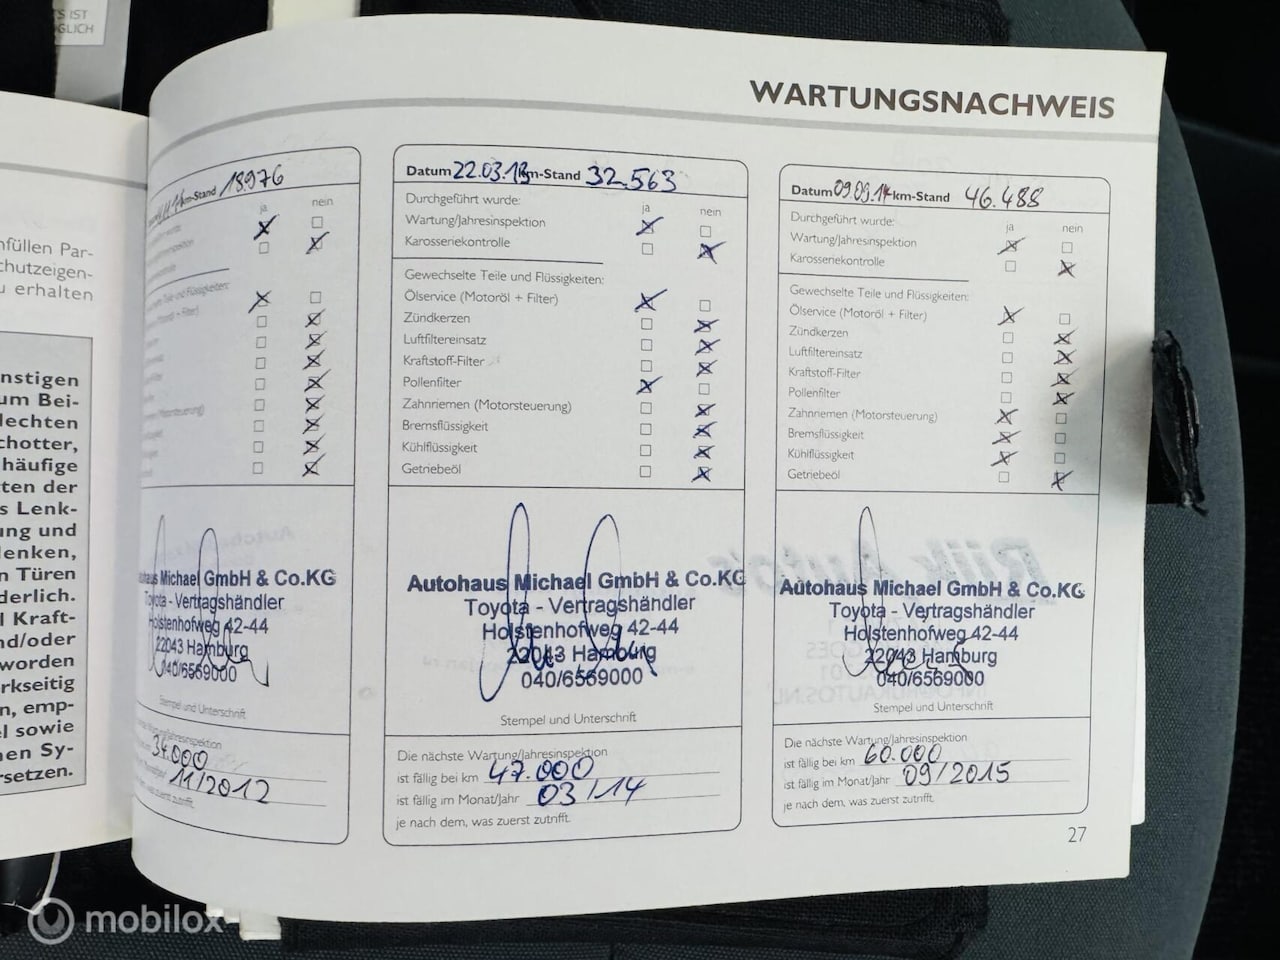 S IST
ÖGLICH
nfüllen Par-
chutzeigen-
u erhalten
nstigen
um Bei-
lechten
chotter,
häufige
ten der
s Lenk-
ung und
lenken,
n Türen
derlich.
l Kraft-
nd/oder
worden
rkseitig
n, emp-
el sowie
nen Sy-
rsetzen.
WARTUNGSNACHWEIS
km-Stand 18976
ja nein
Teile und Flüssigkeiten:
+ Filter)
(Motorsteuerung)
Autohaus Michael GmbH & Co.KG
Toyota - Vertragshändler
Holstenhofweg 42-44
22043 Hamburg
040/6569000
Stempel und Unterschrift
Wartung/Jahresinspektion
34.000
11/2012
was zuerst zutrifft.
Datum 22.03.13 km-Stand 32.563
Durchgeführt wurde: ja nein
Wartung/Jahresinspektion
Karosseriekontrolle
Gewechselte Teile und Flüssigkeiten:
Ölservice (Motoröl + Filter)
Zündkerzen
Luftfiltereinsatz
Kraftstoff-Filter
Pollenfilter
Zahnriemen (Motorsteuerung)
Bremsflüssigkeit
Kühlflüssigkeit
Getriebeöl
Autohaus Michael GmbH & Co.KG
Toyota - Vertragshändler
Holstenhofweg 42-44
22043 Hamburg
040/6569000
Stempel und Unterschrift
Die nächste Wartung/Jahresinspektion
ist fällig bei km 47.000
ist fällig im Monat/Jahr 03/14
je nach dem, was zuerst zutrifft.
Datum 09.09.14 km-Stand 46.488
Durchgeführt wurde: ja nein
Wartung/Jahresinspektion
Karosseriekontrolle
Gewechselte Teile und Flüssigkeiten:
Ölservice (Motoröl + Filter)
Zündkerzen
Luftfiltereinsatz
Kraftstoff-Filter
Pollenfilter
Zahnriemen (Motorsteuerung)
Bremsflüssigkeit
Kühlflüssigkeit
Getriebeöl
Autohaus Michael GmbH & Co.KG
Toyota - Vertragshändler
Holstenhofweg 42-44
22043 Hamburg
040/6569000
Stempel und Unterschrift
Die nächste Wartung/Jahresinspektion
ist fällig bei km 60.000
ist fällig im Monat/Jahr 09/2015
je nach dem, was zuerst zutrifft.
27
mobilox